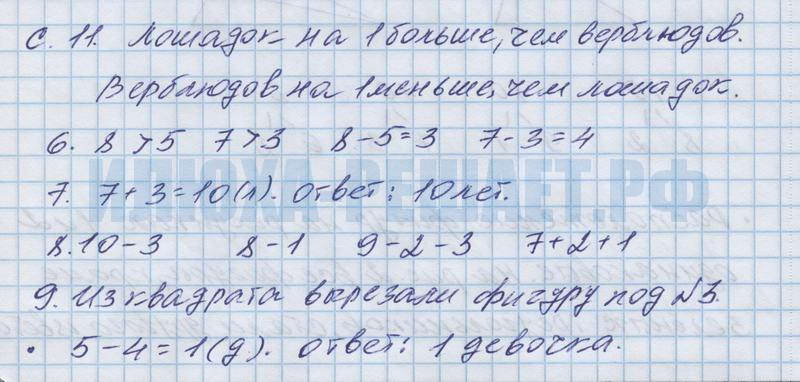 с. 11. Лошадок на 1 больше, чем верблюдов.
Верблюдов на 1 меньше, чем лошадок.
6. 8 > 5 7 > 3 8 - 5 = 3 7 - 3 = 4
ИЛЮХА-РЕШАЕТ.РФ
7. 7 + 3 = 10 (л). Ответ: 10 лет.
8. 10 - 3 8 - 1 9 - 2 - 3 7 + 2 + 1
9. Из квадрата вырезали фигуру под №3.
• 5 - 4 = 1 (д). Ответ: 1 девочка.